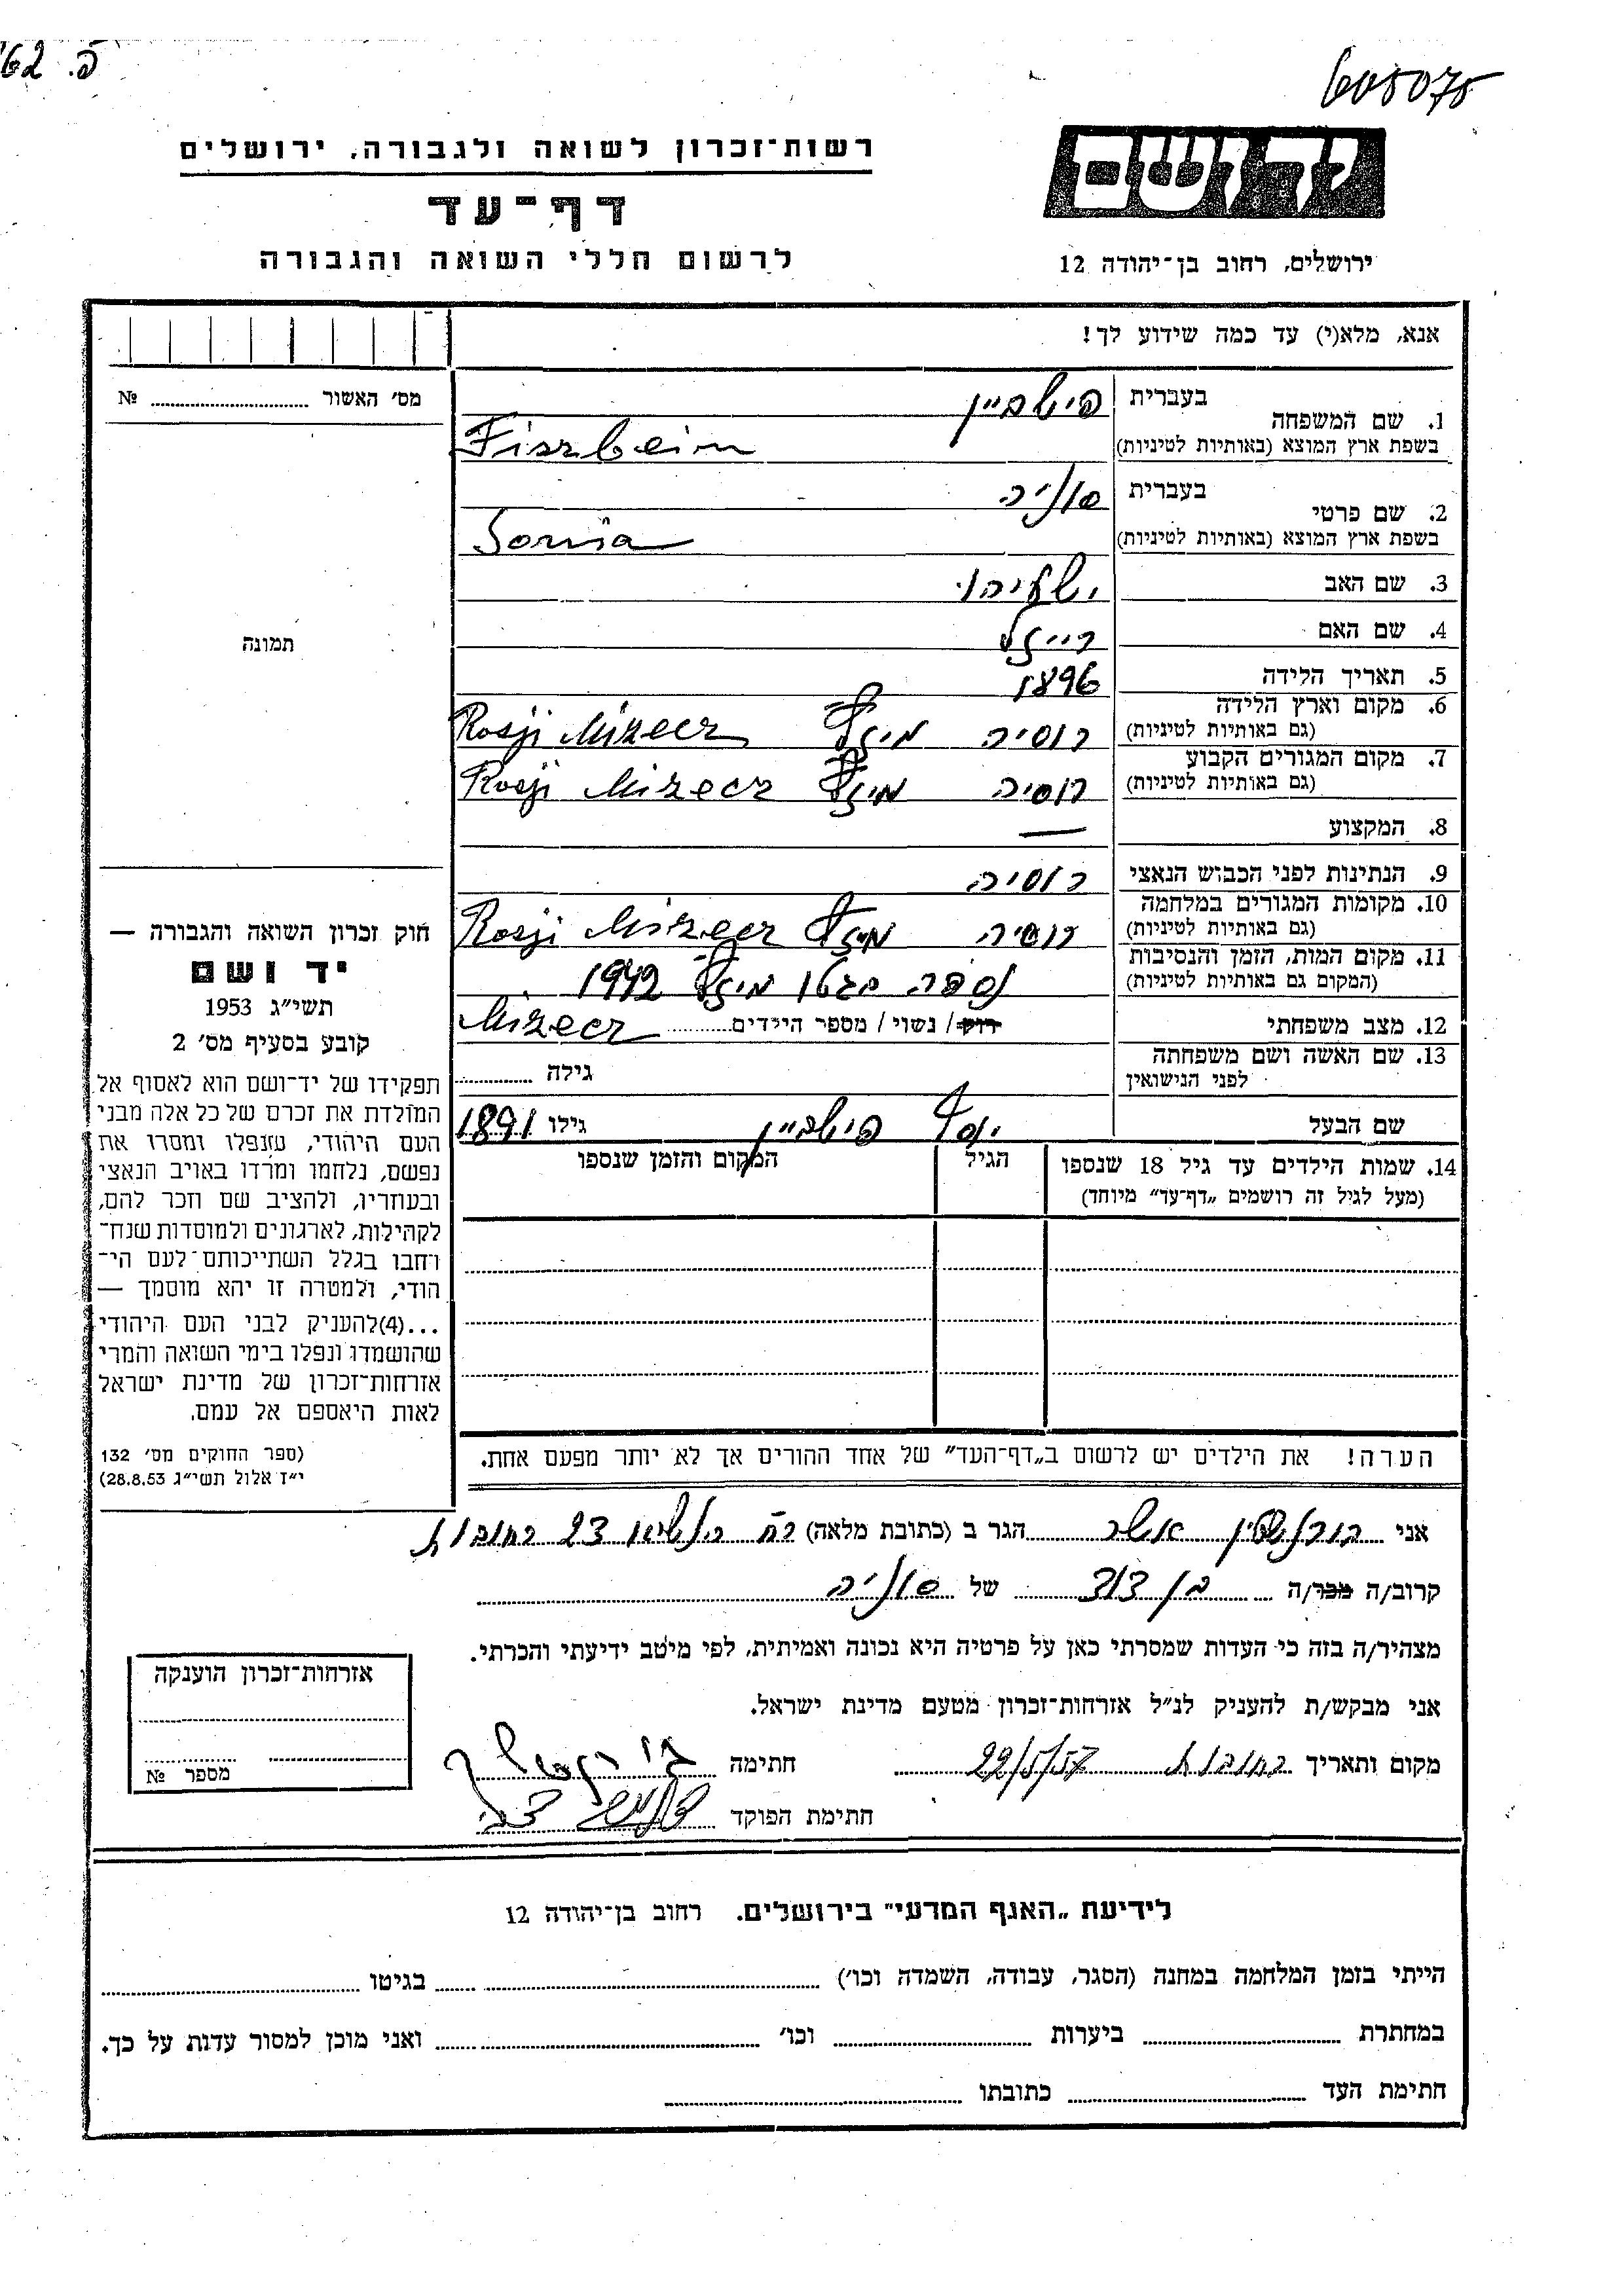 פ. 62'
605075
רשות־זכרון לשואה ולגבורה, ירושלים
יד ושם
דף־עד
לרשום חללי השואה והגבורה
ירושלים, רחוב בן־יהודה 12
אנא, מלא(י) עד כמה שידוע לך!
מס' האשור № 
1. שם המשפחה
בעברית פישביין
בשפת ארץ המוצא (באותיות לטיניות) Fiszbein
2. שם פרטי
בעברית סוניה
בשפת ארץ המוצא (באותיות לטיניות) Sonia
3. שם האב ישעיהו
4. שם האם רייזל
5. תאריך הלידה 1896
6. מקום וארץ הלידה
(גם באותיות לטיניות) רוסיה מיזץ Rosji Mizecz
7. מקום המגורים הקבוע
(גם באותיות לטיניות) רוסיה מיזץ Rosji Mizecz
8. המקצוע —
9. הנתינות לפני הכבוש הנאצי רוסיה
10. מקומות המגורים במלחמה
(גם באותיות לטיניות) רוסיה מיזץ Rosji Mizecz
11. מקום המות, הזמן והנסיבות
(המקום גם באותיות לטיניות) נספה בגטו מיזץ 1942
12. מצב משפחתי רוק / נשוי / מספר הילדים Mizecz
13. שם האשה ושם משפחתה
לפני הנישואין גילה
שם הבעל יוסף פישביין גילו 1891
14. שמות הילדים עד גיל 18 שנספו
(מעל לגיל זה רושמים „דף־עד” מיוחד)
הגיל
המקום והזמן שנספו
הערה! את הילדים יש לרשום ב„דף־העד” של אחד ההורים אך לא יותר מפעם אחת.
תמונה
חוק זכרון השואה והגבורה —
יד ושם
תשי״ג 1953
קובע בסעיף מס' 2
תפקידו של יד־ושם הוא לאסוף אל
המולדת את זכרם של כל אלה מבני
העם היהודי, שנפלו ומסרו את
נפשם, נלחמו ומרדו באויב הנאצי
ובעוזריו, ולהציב שם וזכר להם,
לקהילות, לארגונים ולמוסדות שנח־
רבו בגלל השתייכותם לעם הי־
הודי, ולמטרה זו יהא מוסמך —
...(4)להעניק לבני העם היהודי
שהושמדו ונפלו בימי השואה והמרי
אזרחות־זכרון של מדינת ישראל
לאות היאספם אל עמם.
(ספר החוקים מס' 132
י״ז אלול תשי״ג 28.8.53)
אני בורנשטין אשר הגר ב (כתובת מלאה) רח הנשיא 23 רחובות
קרוב/ה מכר/ה בן דוד של סוניה
מצהיר/ה בזה כי העדות שמסרתי כאן על פרטיה היא נכונה ואמיתית, לפי מיטב ידיעתי והכרתי.
אני מבקש/ת להעניק לנ״ל אזרחות־זכרון מטעם מדינת ישראל.
מקום ותאריך רחובות 22/5/57 חתימה
חתימת הפוקד
אזרחות־זכרון הוענקה
מספר №
לידיעת „האנף המדעי” בירושלים. רחוב בן־יהודה 12
הייתי בזמן המלחמה במחנה (הסגר, עבודה, השמדה וכו') בגיטו
במחתרת ביערות וכו' ואני מוכן למסור עדות על כך.
חתימת העד כתובתו